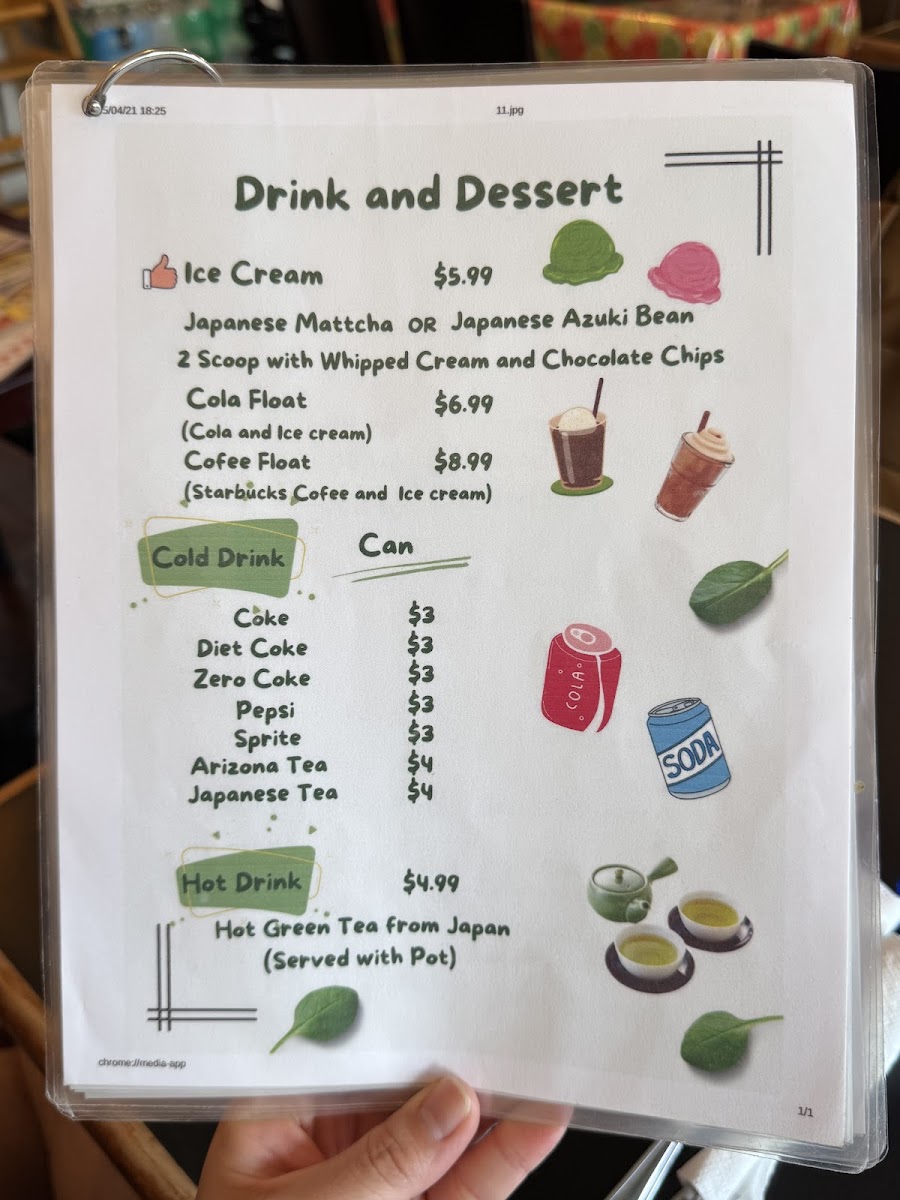 5/04/21 18:25 11.jpg
Drink and Dessert
Ice Cream $5.99
Japanese Mattcha OR Japanese Azuki Bean
2 Scoop with Whipped Cream and Chocolate Chips
Cola Float $6.99
(Cola and Ice cream)
Cofee Float $8.99
(Starbucks Cofee and Ice cream)
Cold Drink Can
Coke $3
Diet Coke $3
Zero Coke $3
Pepsi $3
Sprite $3
Arizona Tea $4
Japanese Tea $4
COLA
SODA
Hot Drink $4.99
Hot Green Tea from Japan
(Served with Pot)
chrome://media-app
1/1